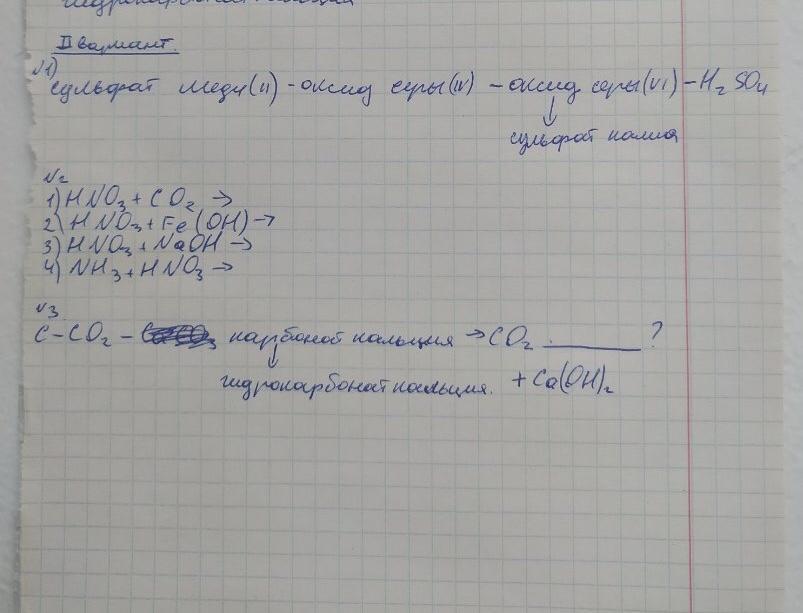 гидрокарбонат кальция
II вариант.
№1)
сульфат меди(II) - оксид серы(IV) - оксид серы(VI) - H₂SO₄
↓
сульфат калия
№2
1) HNO₃ + CO₂ →
2) HNO₃ + Fe(OH) →
3) HNO₃ + NaOH →
4) NH₃ + HNO₃ →
№3
C - CO₂ - карбонат кальция → CO₂ ______ ?
↓
гидрокарбонат кальция. + Ca(OH)₂